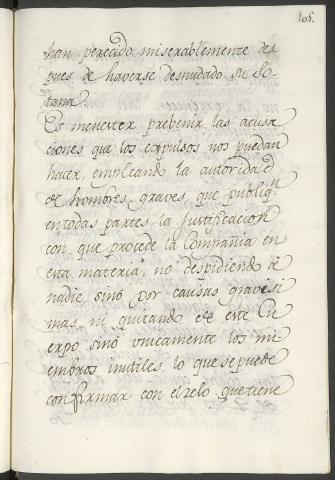 105.
han perecido miserablemente des
pues de haverse desnudado su So
tana.
Es menester prebenir las acusa
ciones que los expulsos nos puedan
hacer, empleando la autoridad
de hombres graves, que publiqn
en todas partes la justificacion
con que procede la Compañia en
esta materia, no despidiendo à
nadie, sinó por causas gravisi
mas, ni quitando de este Cu
erpo sinò unicamente los mi
embros inutiles, lo que se puede
confirmar con el zelo, que tiene